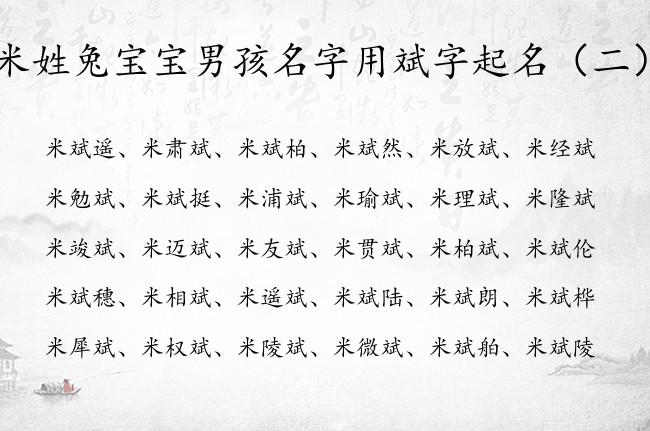 米姓兔宝宝男孩名字用斌字起名（二）
米斌遥、米肃斌、米斌柏、米斌然、米放斌、米经斌
米勉斌、米斌挺、米浦斌、米瑜斌、米理斌、米隆斌
米竣斌、米迈斌、米友斌、米贯斌、米柏斌、米斌伦
米斌穗、米相斌、米遥斌、米斌陆、米斌朗、米斌桦
米犀斌、米权斌、米陵斌、米微斌、米斌舶、米斌陵